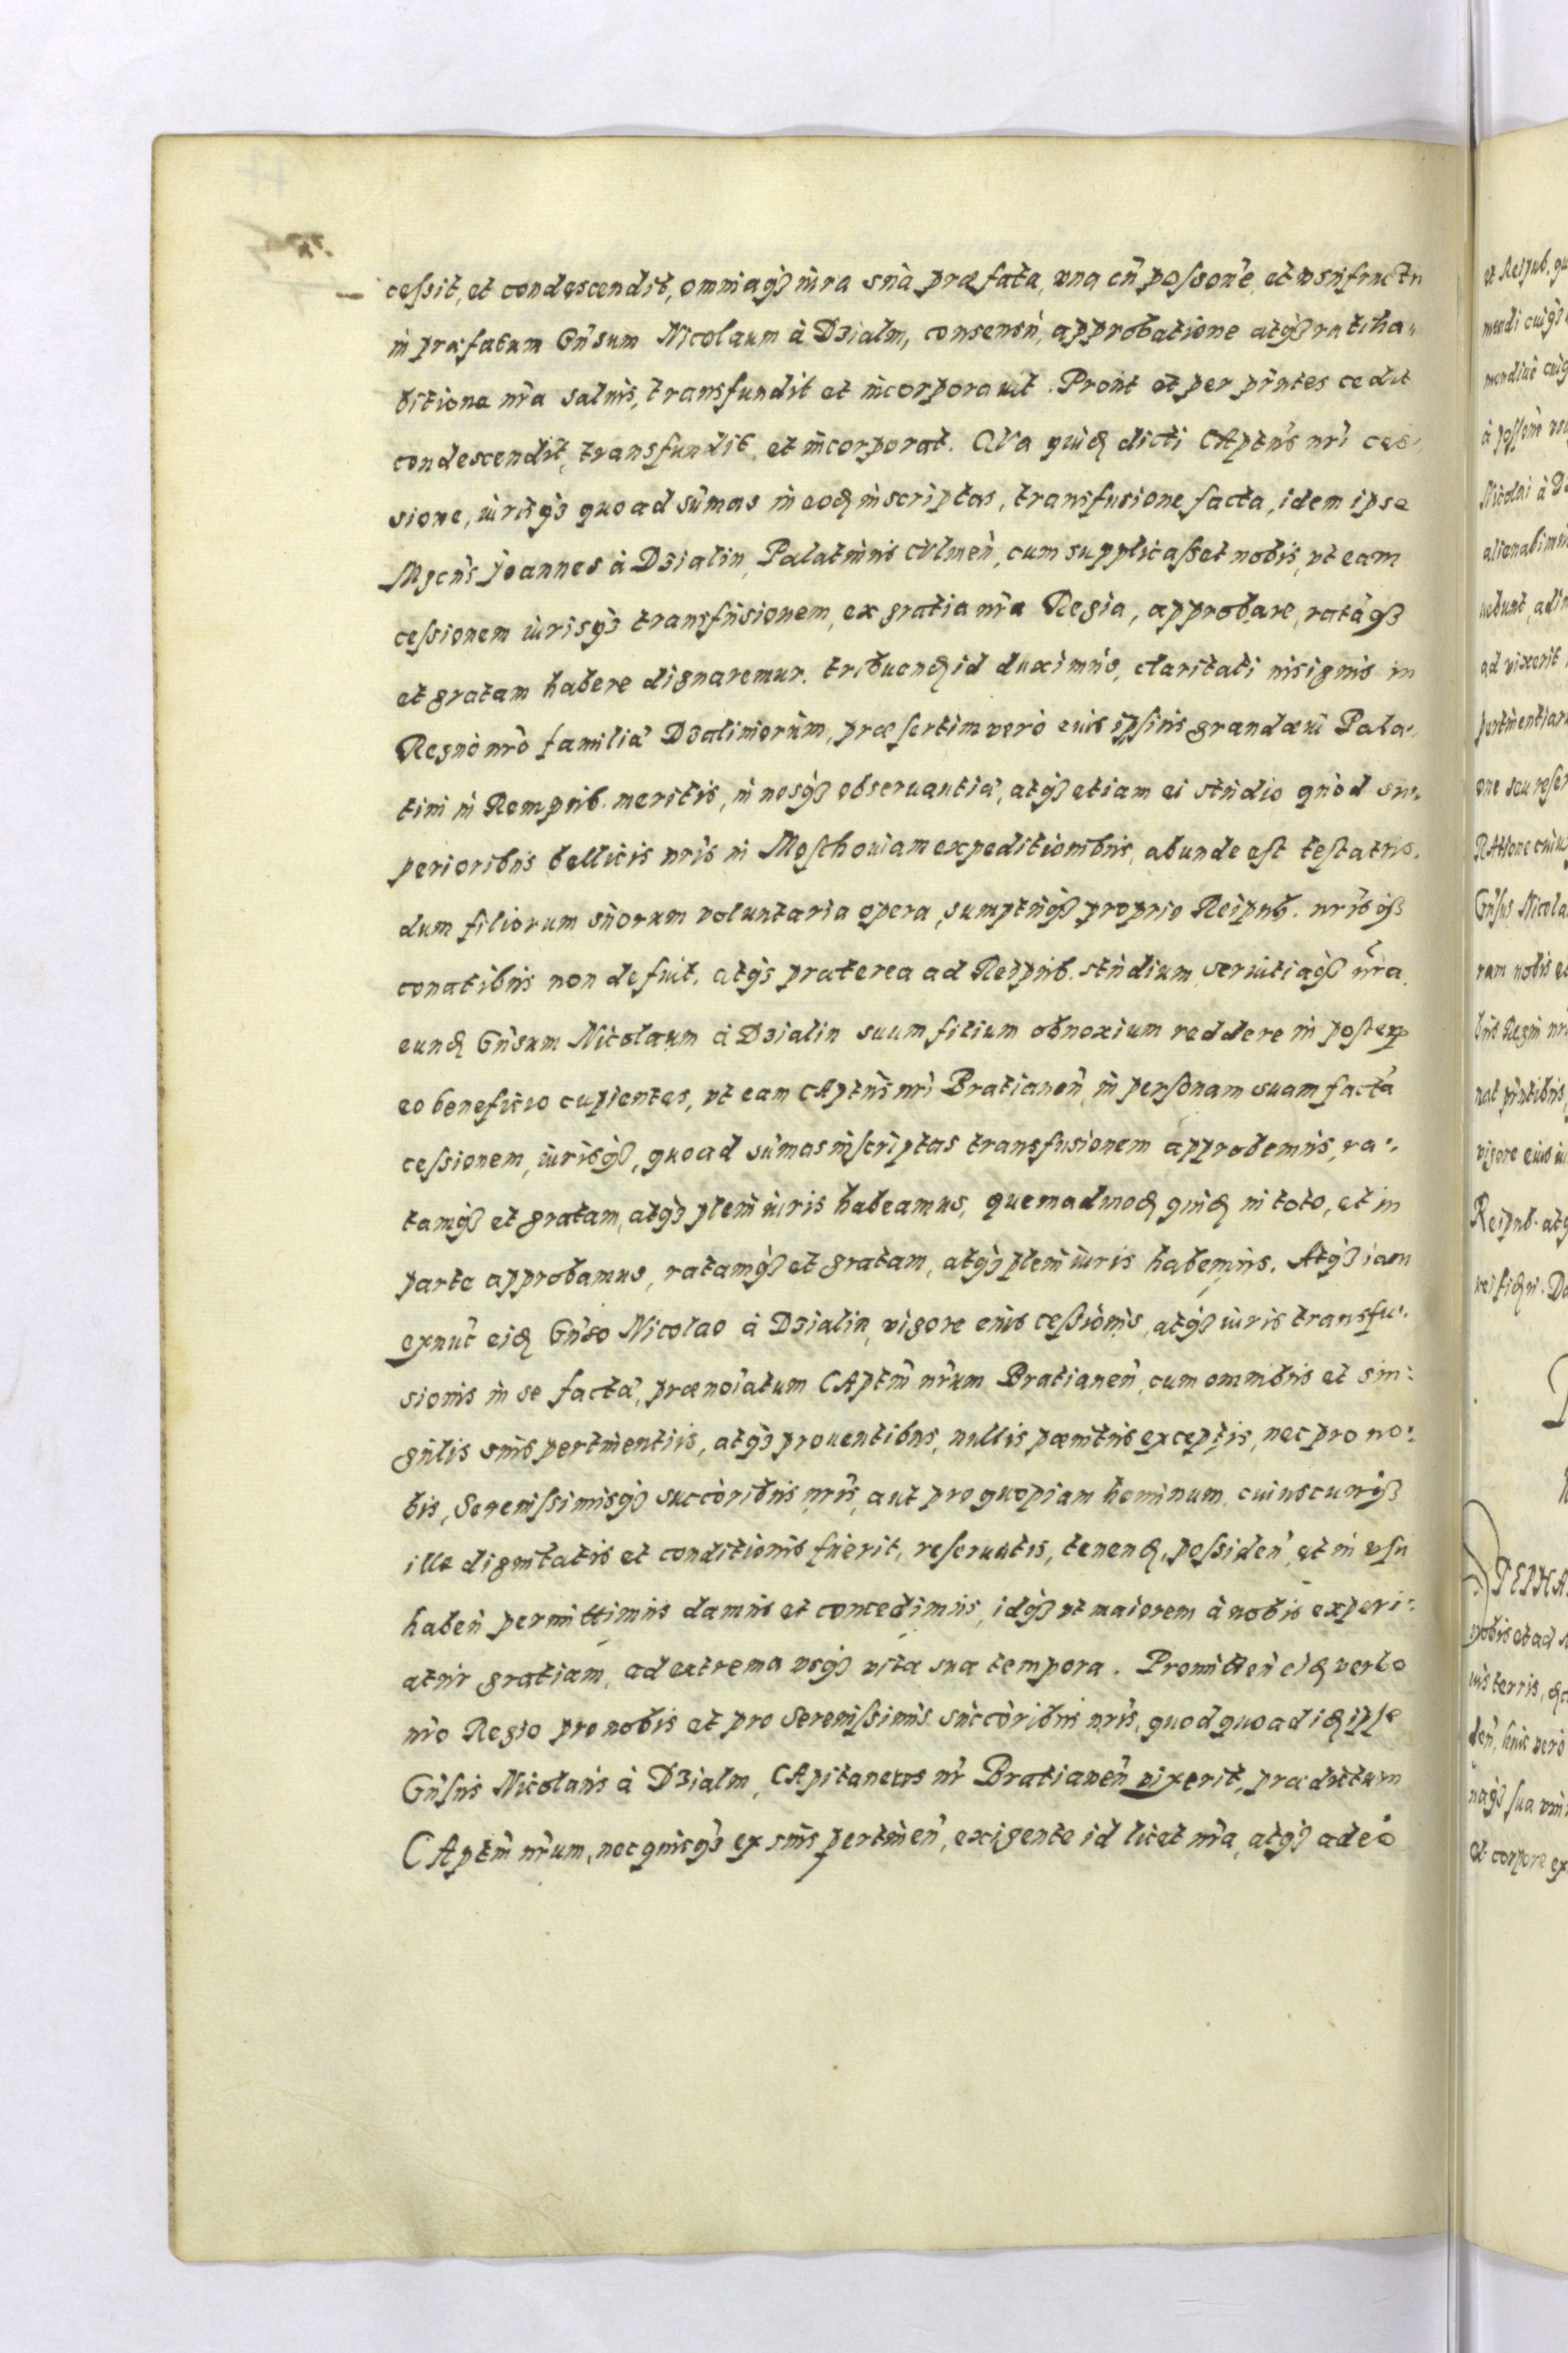 cessit, et condescendit, omniaq́ꝫ iura sua præfata, vna cũ possone, et vsufructu
in præfatum Gñsum Nicolaum à Dzialin, consensu, approbatione atq́ꝫ ratiha-
bitione nr̃a saluis, transfundit et incorporauit. Prout et per pñtes cedit
condescendit, transfundit, et incorporat. QVa quidẽ dicti CAptñs nr̃i ces-
sione, iurisq́ꝫ quoad sũmas in eodẽ inscriptas, transfusione facta, idem ipse
Mgcñs Joannes à Dzialin, Palatinus CVlmeñ, cum supplicasset nobis, vt eam
cessionem iurisq́ꝫ transfusionem, ex gratia nr̃a Regia, approbare, ratãq́ꝫ
et gratam habere dignaremur. tribuendẽ id duximus, claritati insignis in
Regno nr̃o familiæ Dzaliniorum, præsertim vero eius ipsius grandæui Pala-
tini in Rempub. meritis, in nosq́ꝫ obseruantiæ, atq́ꝫ etiam ei studio quòd su-
perioribus bellicis nr̃is in Moschouiam expeditionibus, abunde est testatus.
dum filiorum suorum voluntaria opera, sumptuq́ꝫ proprio Reipub. nr̃isq́ꝫ
conatibus non defuit. atq́ꝫ præterea ad Reipub. studium, seruitiaq́ꝫ nr̃a
eundẽ Gñsum Nicolaum à Dzialin suum filium obnoxium reddere in posterũ
eo beneficio cupientes, vt eam CAptñs nr̃i Bratianeñ, in personam suam factã
cessionem, iurisq́ꝫ, quoad sũmas inscriptas transfusionem approbemus, ra-
tamq́ꝫ et gratam, atq́ꝫ pleni iuris habeamus, quemadmodẽ quidẽ in toto, et in
parte approbamus, ratamq́ꝫ et gratam, atq́ꝫ pleni iuris habemus. Atq́ꝫ iam
exnuc eidẽ Gñso Nicolao à Dzialin, vigore eius cessionis, atq́ꝫ iuris transfu-
sionis in se factæ, prænoiatum CAptm̃ nr̃um Bratianeñ, cum omnibus et sin-
gulis suis pertinentiis, atq́ꝫ prouentibus, nullis pœnitus exceptis, nec pro no-
bis, Serenissimisq́ꝫ succoribus nr̃is, aut pro quopiam hominum, cuiuscunq́ꝫ
ille dignitatis et conditionis fuerit, reseruatis, tenendẽ, possideñ, et in vsu
habeñ permittimus damus et concedimus, idq́ꝫ vt maiorem à nobis experi-
atur gratiam, ad extrema vsq́ꝫ vitæ suæ tempora. Promitteñ eidẽ verbo
nr̃o Regio pro nobis et pro Serenissimis succoribus nr̃is, quod quoad idẽ ipse
Gñsus Nicolaus à Dzialin, CApitaneus nr̃ Bratianeñ vixerit, prædictum
CAptm̃ nr̃um, nec quicq́ꝫ ex suis pertineñ, exigente id licet nr̃a, atq́ꝫ adeò